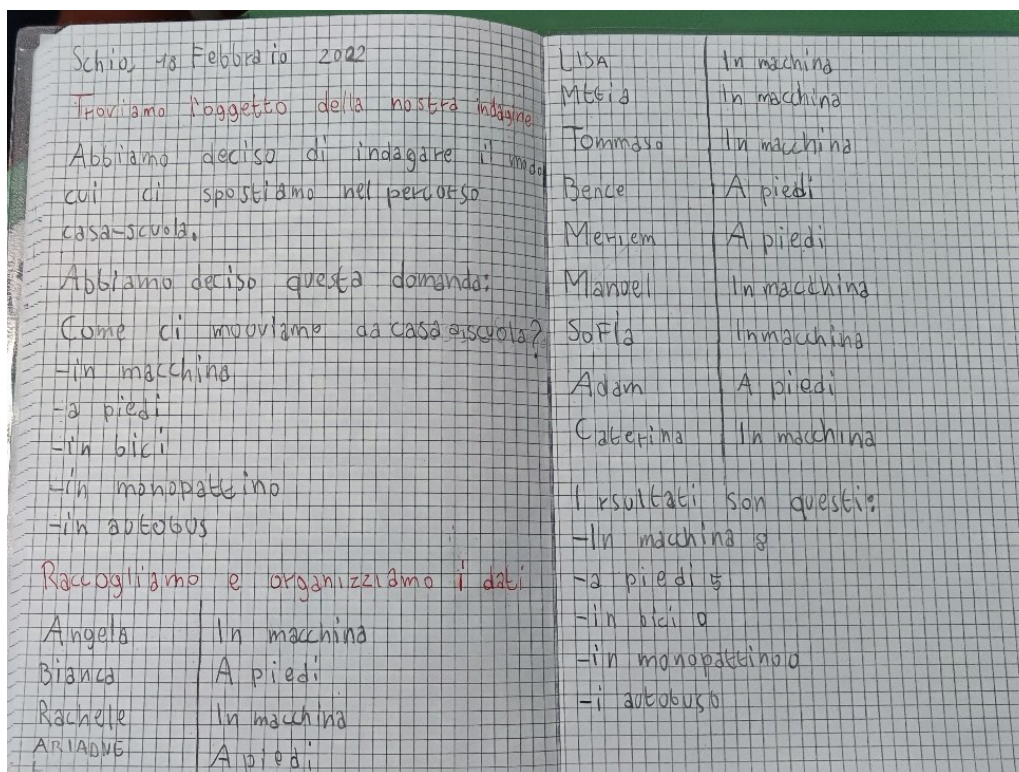 Schio, 18 Febbraio 2022
Troviamo l'oggetto della nostra indagine
Abbiamo deciso di indagare il modo
cui ci spostiamo nel percorso
casa-scuola.
Abbiamo deciso questa domanda:
Come ci mooviamo da casa a scuola?
-in macchina
-a piedi
-in bici
-in monopattino
-in autobus
Raccogliamo e organizziamo i dati
Angela In macchina
Bianca A piedi
Rachele In macchina
ARIADNE A piedi
LISA In machina
Mttia In macchina
Tommaso In macchina
Bence A piedi
Meryem A piedi
Manoel In macchina
SoFia In macchina
Adam A piedi
Caterina In macchina
I rsultati son questi:
-In macchina 8
-a piedi 5
-in bici 0
-in monopattino 0
-i autobus 0